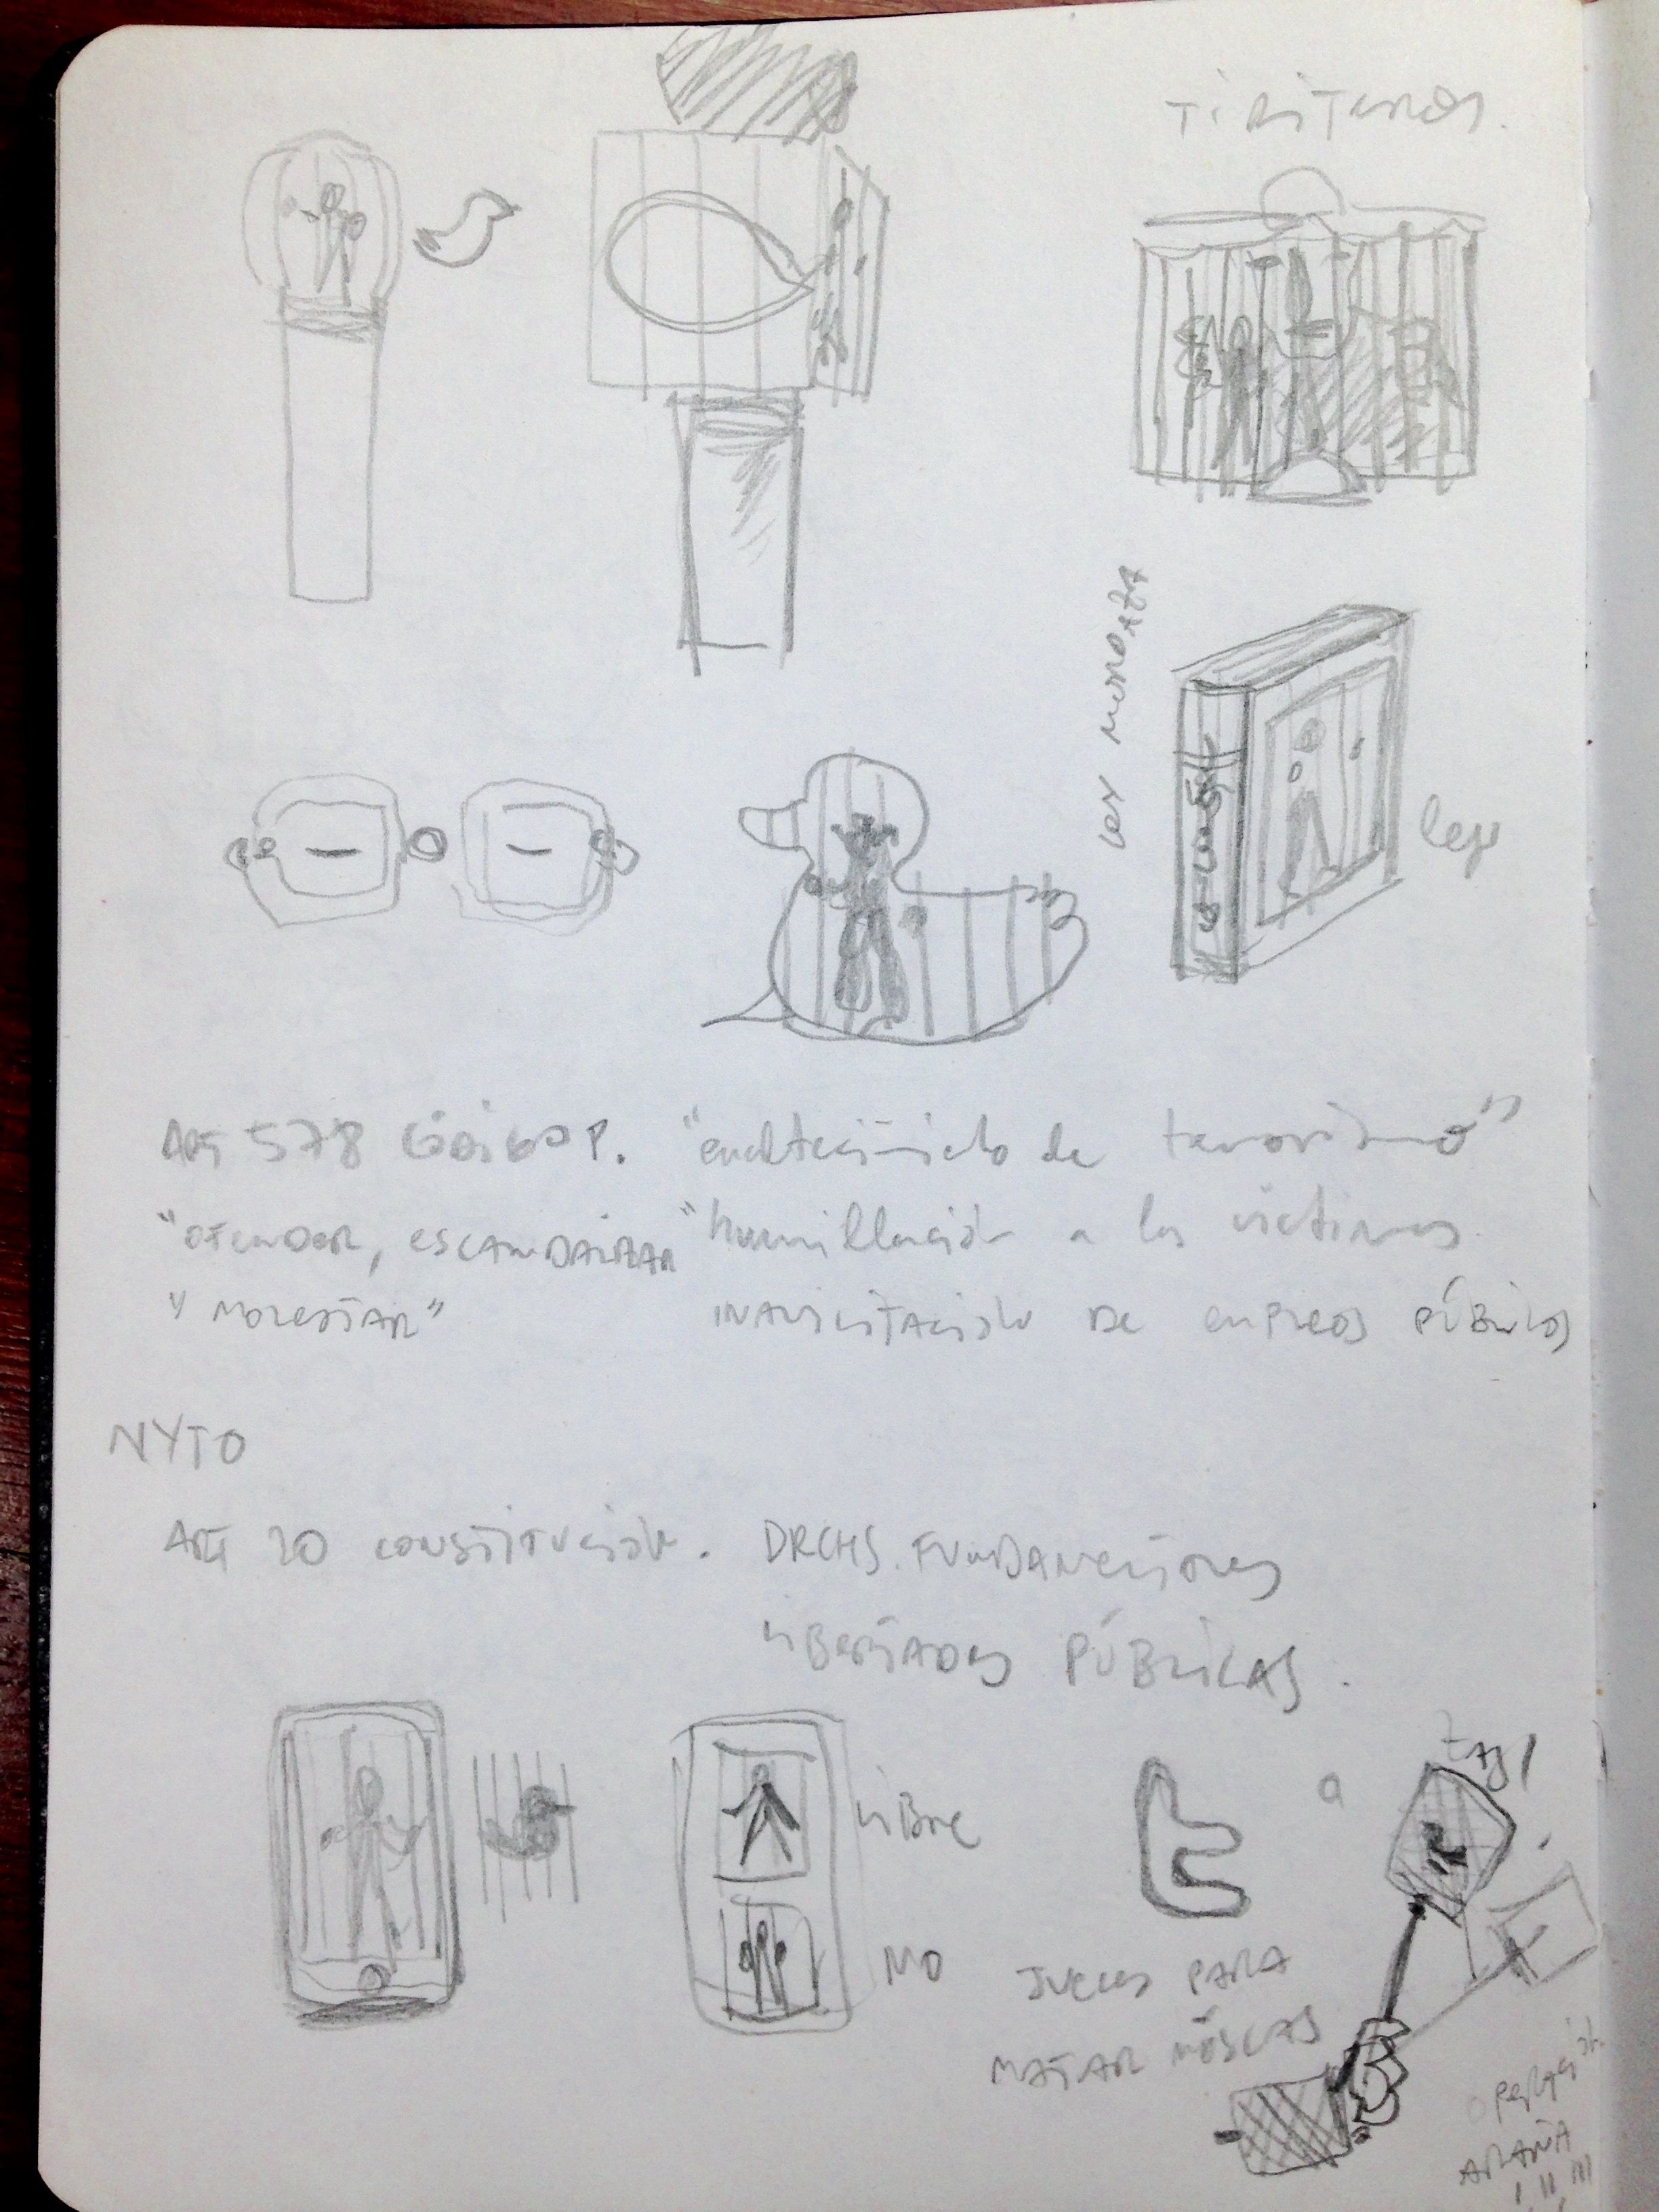 TITITEROS.
LEY MORDAZA
leyes
ART 578 Código P. "enaltecimiento de terrorismo"
"OFENDER, ESCANDALIZAR "humillación a las víctimas
Y MOLESTAR" INHABILITACIÓN DE EMPLEOS PÚBLICOS
NYTO
ART 20 CONSTITUCIÓN. DRCHS. FUNDAMENTALES
LIBERTADES PÚBLICAS.
LIBRE
NO
a
ZAS!
JUECES PARA
MATAR MOSCAS
OPERACIÓN
ARAÑA
I, II, III